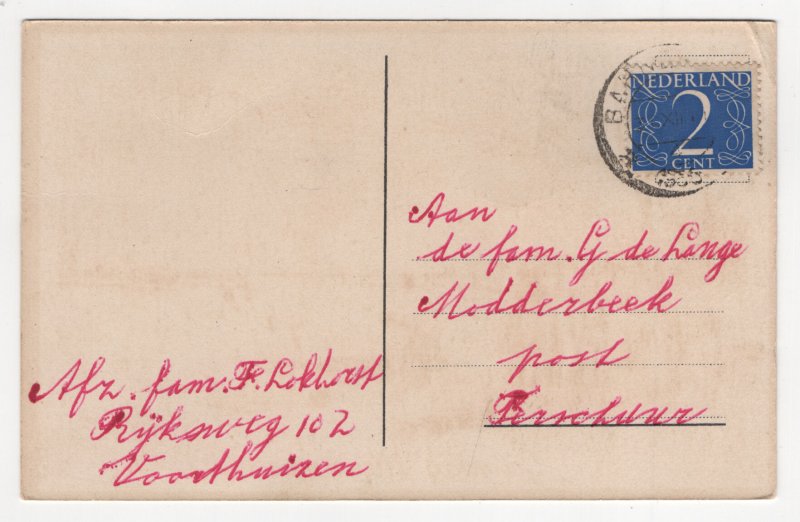 NEDERLAND
2
CENT
Aan
de fam. G de Lange
Modderbeek
post
Terschuur
Afz. fam. F. Lokhorst
Rijksweg 102
Voorthuizen